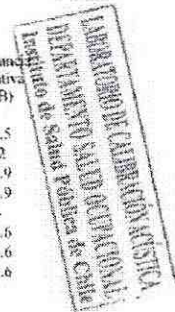 tiva
B)
.5
2
.9
.9
.6
.6
.6
LABORATORIO DE CALIBRACIÓN ACÚSTICA
DEPARTAMENTO SALUD OCUPACIONAL
Instituto de Salud Pública de Chile